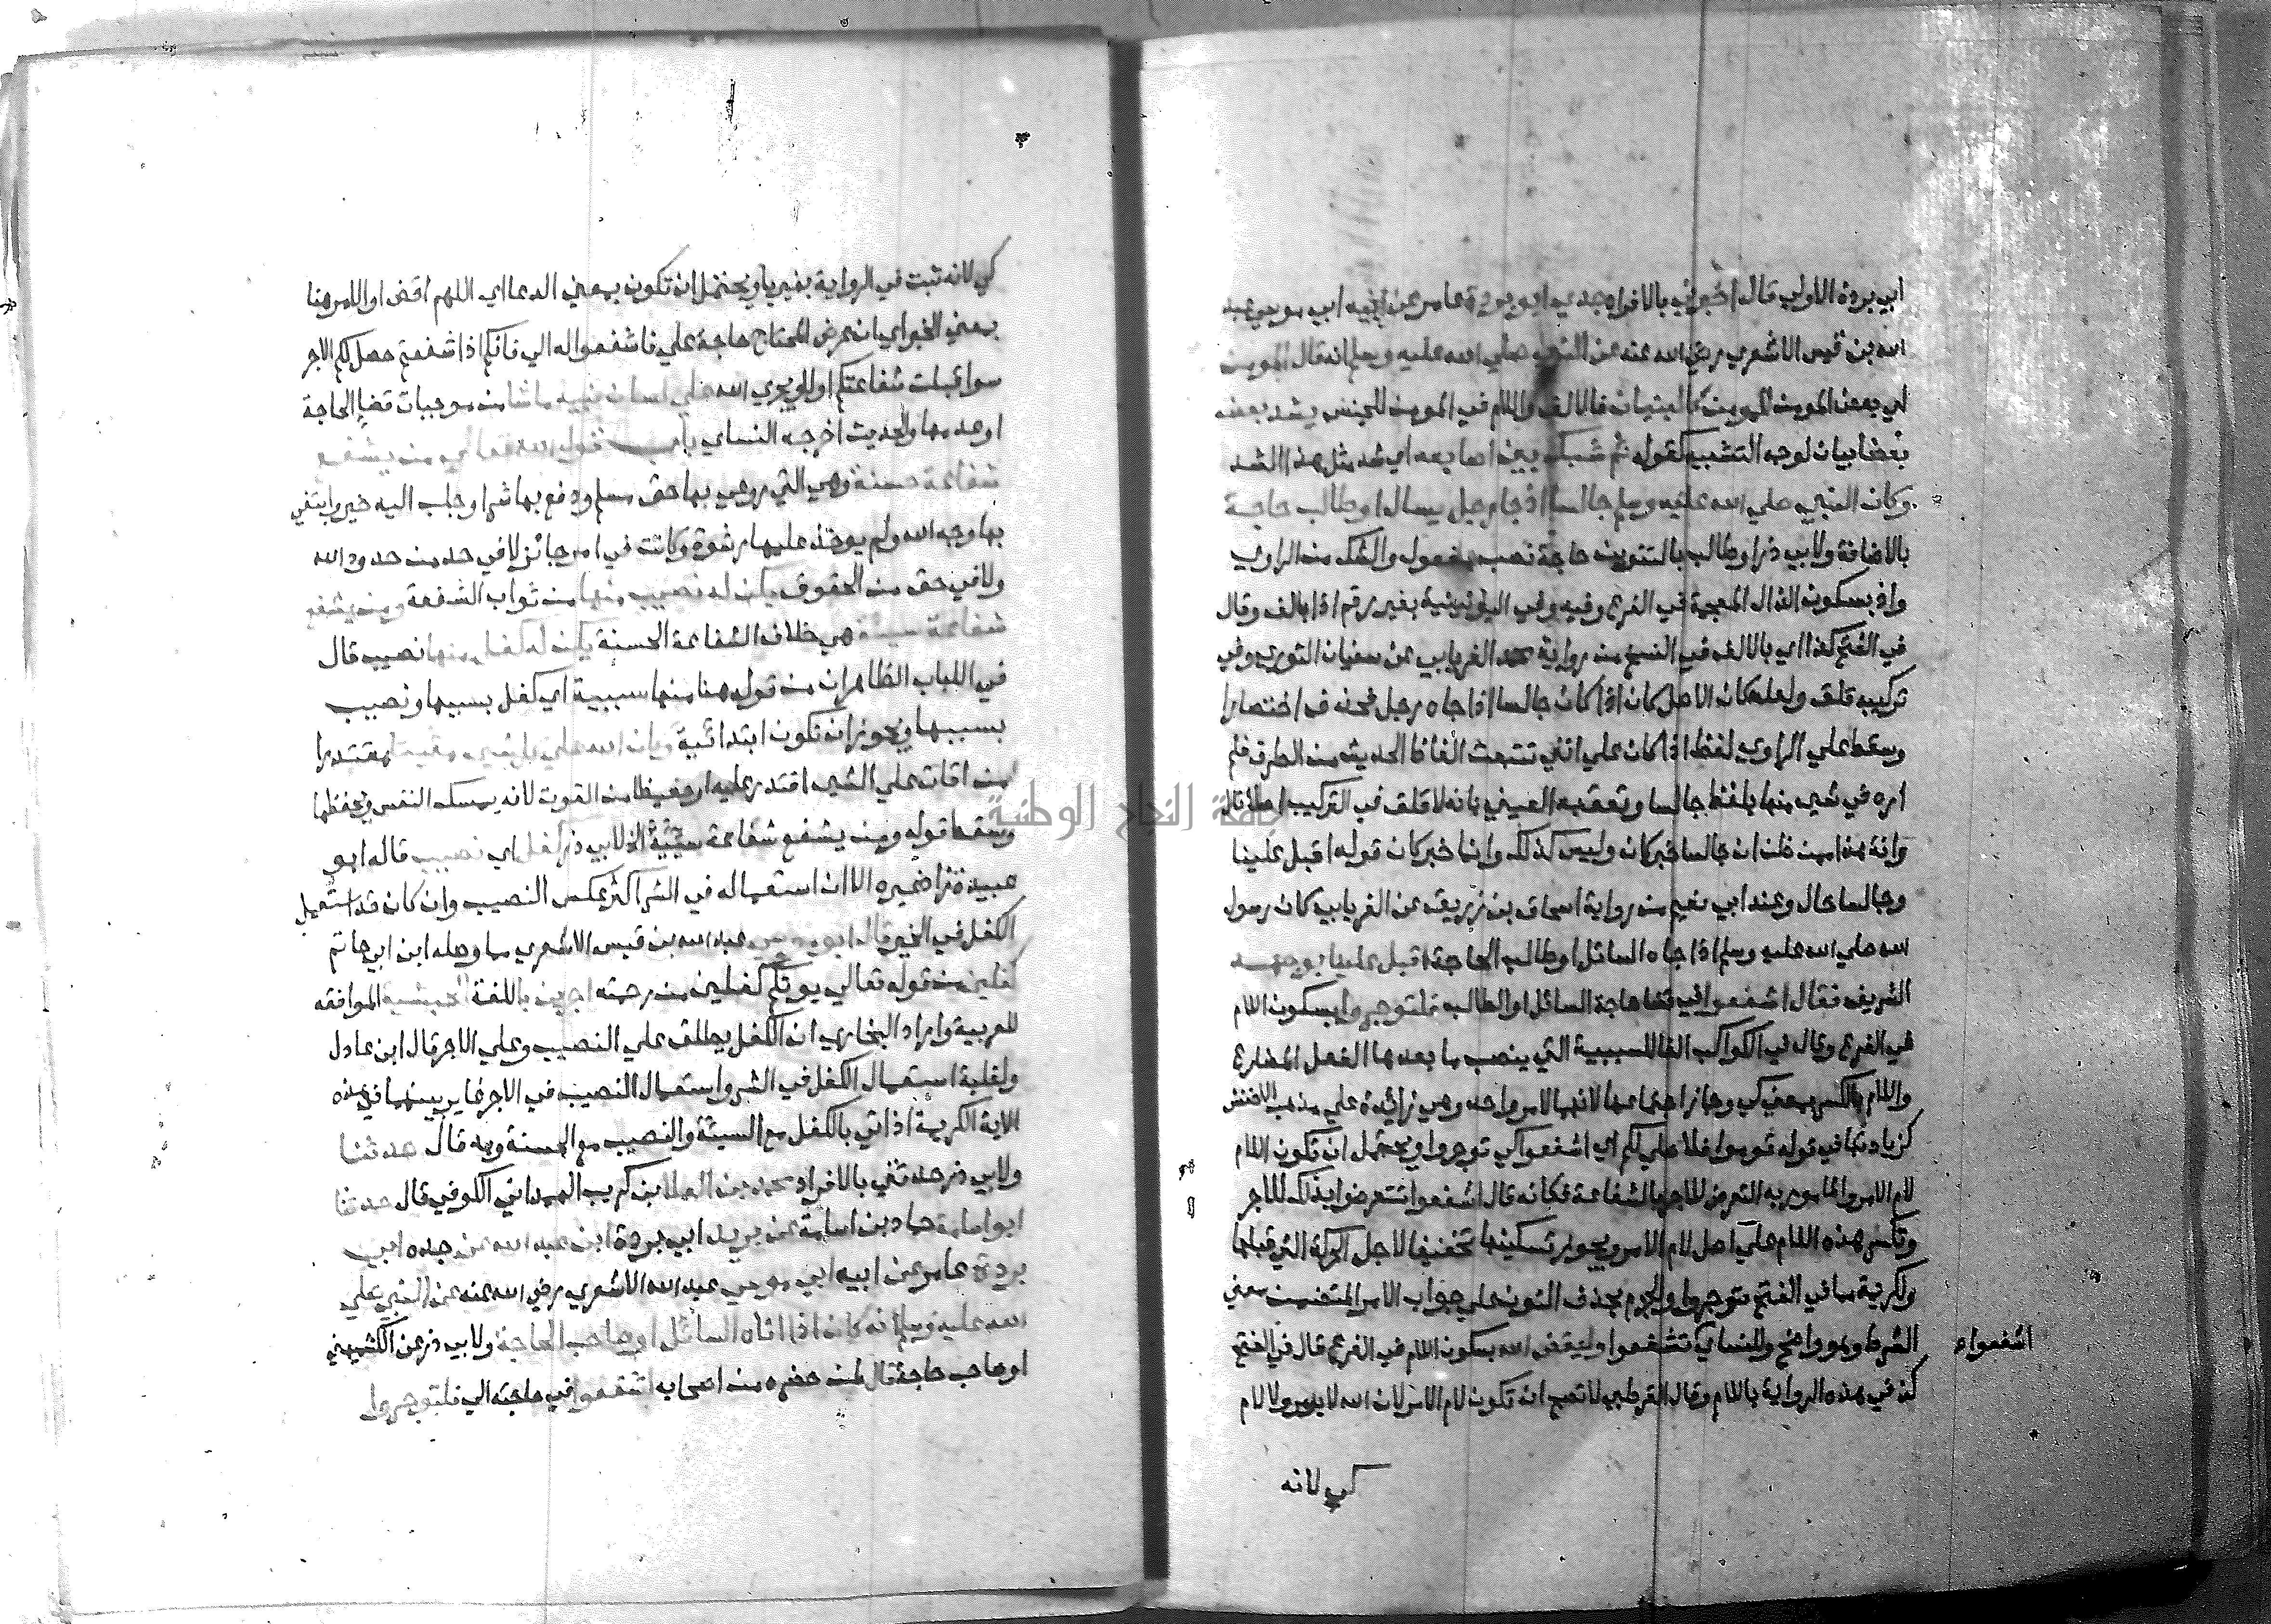 ابي بردة الاولى قال اخبرني بالافراد جدي ابو بردة عامر عن ابيه ابي موسي عبد
الله بن قيس الاشعري رضي الله عنه عن النبي صلي الله عليه وسلم انه قال المومن
اي بعض المومن للمومن كالبنيان فالالف واللام في المومن للجنس يشد بعضه
بعضا بيان لوجه التشبيه كقوله ثم شبك بين اصابعه اي شد مثل هذا الشد
وكان النبي صلي الله عليه وسلم جالسا اذ جا رجل يسال او طالب حاجة
بالاضافة ولابي ذر او طالب بالتنوين حاجة نصب مفعول والشك من الراوي
واذ بسكون الذال المعجمة في الفرع وفيه وفي اليونينية بغير رقم اذا بالف وقال
في الفتح كذا اي بالالف في النسخ من رواية محمد الفريابي عن سفيان الثوري وفي
تركيبه قلق ولعله كان الاصل كان اذا كان جالسا اذا جاه رجل فحذف اختصارا
وسقط علي الراوي لفظ اذا كان علي انني تتبعت الفاظ الحديث من الطرق فلم
اره في شي منها بلفظ جالسا وتعقبه العيني بانه لا قلق في التركيب اصلا قال
وانة هذا من ظن ان جالسا خبر كان وليس كذلك وانما خبر كان قوله اقبل علينا
وجالسا حال وعند ابي نعيم من رواية اسحاق بن زريق عن الفريابي كان رسول
الله صلي الله عليه وسلم اذا جاه السائل او طالب الحاجة اقبل علينا بوجهه
الشريف فقال اشفعوا في قضا حاجة السائل او الطالب فلتوجروا بسكون اللام
في الفرع وقال في الكواكب الفا للسببية التي ينصب ما بعدها الفعل المضارع
واللام بالكسر بمعني كي وجاز اجتماعهما لانهما لامر واحد وهي زائدة علي مذهب الاخفش
كزيادتها في قوله قوموا فلاصلي لكم اي اشفعوا كي توجروا ويحتمل ان تكون اللام
لام الامر والمامور به التعرض للاجر بالشفاعة فكانه قال اشفعوا فتعرضوا بذلك للاجر
وتكسر هذه اللام علي اصل لام الامر ويجوز تسكينها تخفيفا لاجل الحركة التي قبلها
ولكريمة مما في الفتح توجروا والجزم بحذف النون علي جواب الامر المتضمن معني
الشرط وهو واضح وللنساي تشفعوا وليقض الله بسكون اللام في الفرع قال في الفتح
اشفعوا
كذا في هذه الرواية باللام وقال القرطبي لا تصح ان تكون لام الامر لان الله لا يومر ولا لام
كي لانه
كي لانه ثبت في الرواية بغير يا ويحتمل ان تكون بمعني الدعا اي اللهم اقض او الامر هنا
بمعني الخبر اي ان عرض المحتاج حاجة علي فاشفعوا له الي فانكم اذا شفعتم حصل لكم الاجر
سوا قبلت شفاعتكم او لا ويجري الله علي لسان نبيه ما شا من موجبات قضا الحاجة
او عدمها والحديث اخرجه النساي باب قول الله تعالي من يشفع
شفاعة حسنة وهي التي روعي بها حق مسلم ودفع بها شر او جلب اليه خير وابتغي
بها وجه الله ولم يوخذ عليها رشوة وكانت في امر جائز لا في حد من حدود الله
ولا في حق من الحقوق يكن له نصيب منها من ثواب الشفعة ومن يشفع
شفاعة سيئة هي خلاف الشفاعة الحسنة يكن له كفل منها نصيب قال
في اللباب الظاهر ان من قوله هنا منها سببية اي كفل بسببها ونصيب
بسببها ويجوز ان تكون ابتدائية وكان الله علي كل شي مقيتا مقتدرا
من اقات علي الشي اقتدر عليه او حفيظا من القوت لانه يمسك النفس ويحفظها
وسقط قوله ومن يشفع شفاعة سيئة الخ لابي ذر كفل اي نصيب قاله ابو
عبيدة وزاد غيره الا ان استعماله في الشر اكثر عكس النصيب وان كان قد استعمل
الكفل في الخير قال ابو موسي عبد الله بن قيس الاشعري مما وصله ابن ابي حاتم
كفلين من قوله تعالي يوتكم كفلين من رحمته اجرين باللغة الحبشية الموافقه
للعربية وايراد البخاري ان الكفل يطلق علي النصيب وعلي الاجر قال ابن عادل
ولغلبة استعمال الكفل في الشر واستعمال النصيب في الاجر غاير بينهما في هذه
الاية الكريمة اذ اتي بالكفل مع السيئة والنصيب مع الحسنة وبه قال حدثنا
ولابي ذر حدثني بالافراد محمد بن العلا بن كريب الهمداني الكوفي قال حدثنا
ابو اسامة حماد بن اسامة عن بريد ابي بردة ابن عبد الله عن جده ابي
بردة عامر عن ابيه ابي موسي عبد الله الاشعري رضي الله عنه عن النبي صلي
الله عليه وسلم انه كان اذا اتاه السائل او صاحب الحاجة ولابي ذر عن الكشميهني
او صاحب حاجة قال لمن حضره من اصحابه اشفعوا في حاجته الي فلتوجروا
جامعة النجاح الوطنية